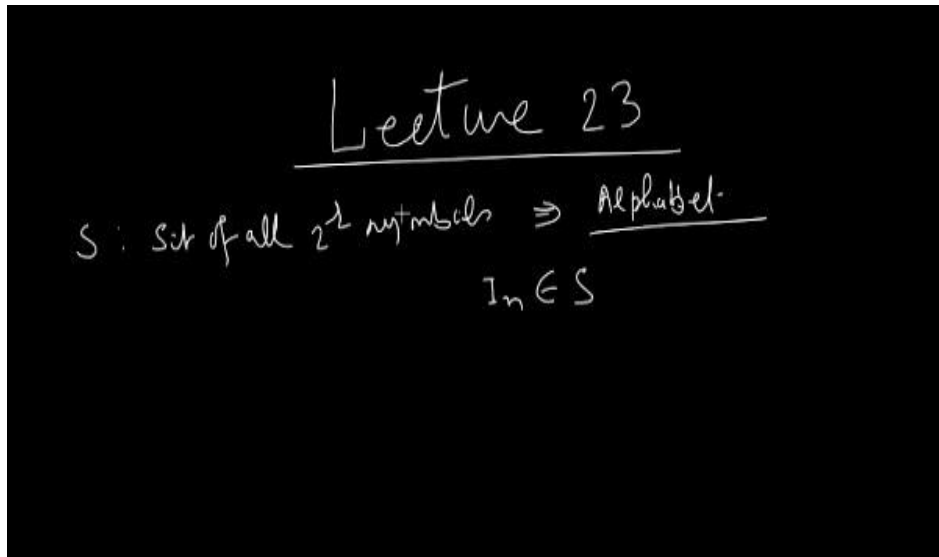 Lecture 23
S : Set of all 2^λ symbols ⇒ Alphabet.
I_n ∈ S